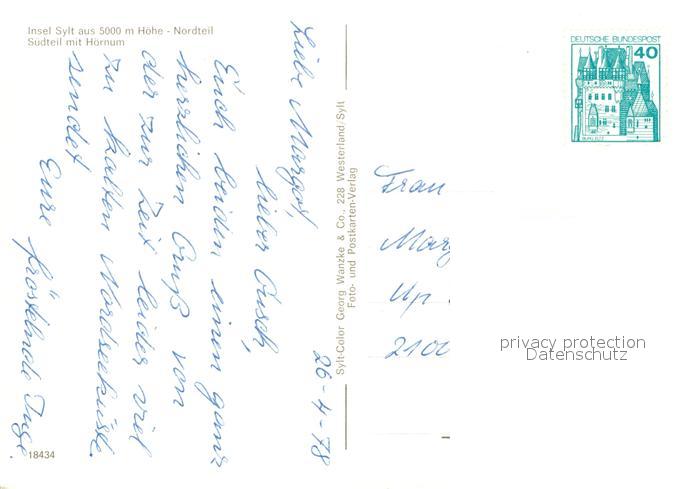 Insel Sylt aus 5000 m Höhe - Nordteil
Südteil mit Hörnum
26-4-78
Liebe Margot,
lieber
Euch beiden einen ganz
herzlichen Gruß von
der zur Zeit leider viel
zu kalten Nordseeküste.
sendet
Eure "fröstelnde" Inge.
18434
Sylt-Color Georg Wanzke & Co., 228 Westerland/Sylt
Foto- und Postkarten-Verlag
DEUTSCHE BUNDESPOST
40
BURG ELTZ
Frau
Marg
Up
2100
privacy protection
Datenschutz